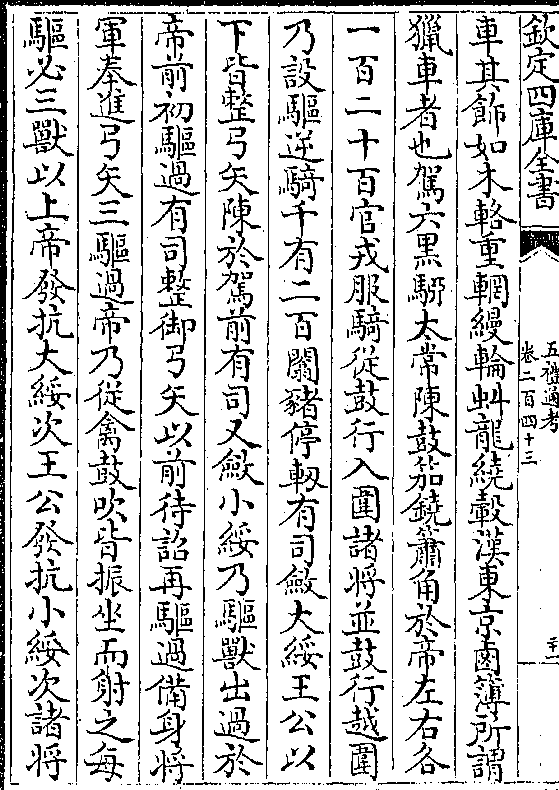 欽定四庫全書
五禮通考
卷二百四十三
二十一
車其飾如木輅重輞縵輪虯龍繞轂漢東京鹵簿所謂
獵車者也駕六黑駵太常陳鼓笳鐃簫角於帝左右各
一百二十百官戎服騎從鼓行入圍諸將並鼓行越圍
乃設驅逆騎千有二百闟豬停軔有司斂大綏王公以
下皆整弓矢陳於駕前有司又斂小綏乃驅獸出過於
帝前初驅過有司整御弓矢以前待詔再驅過備身將
軍奉進弓矢三驅過帝乃從禽鼓吹皆振坐而射之每
驅必三獸以上帝發抗大綏次王公發抗小綏次諸將